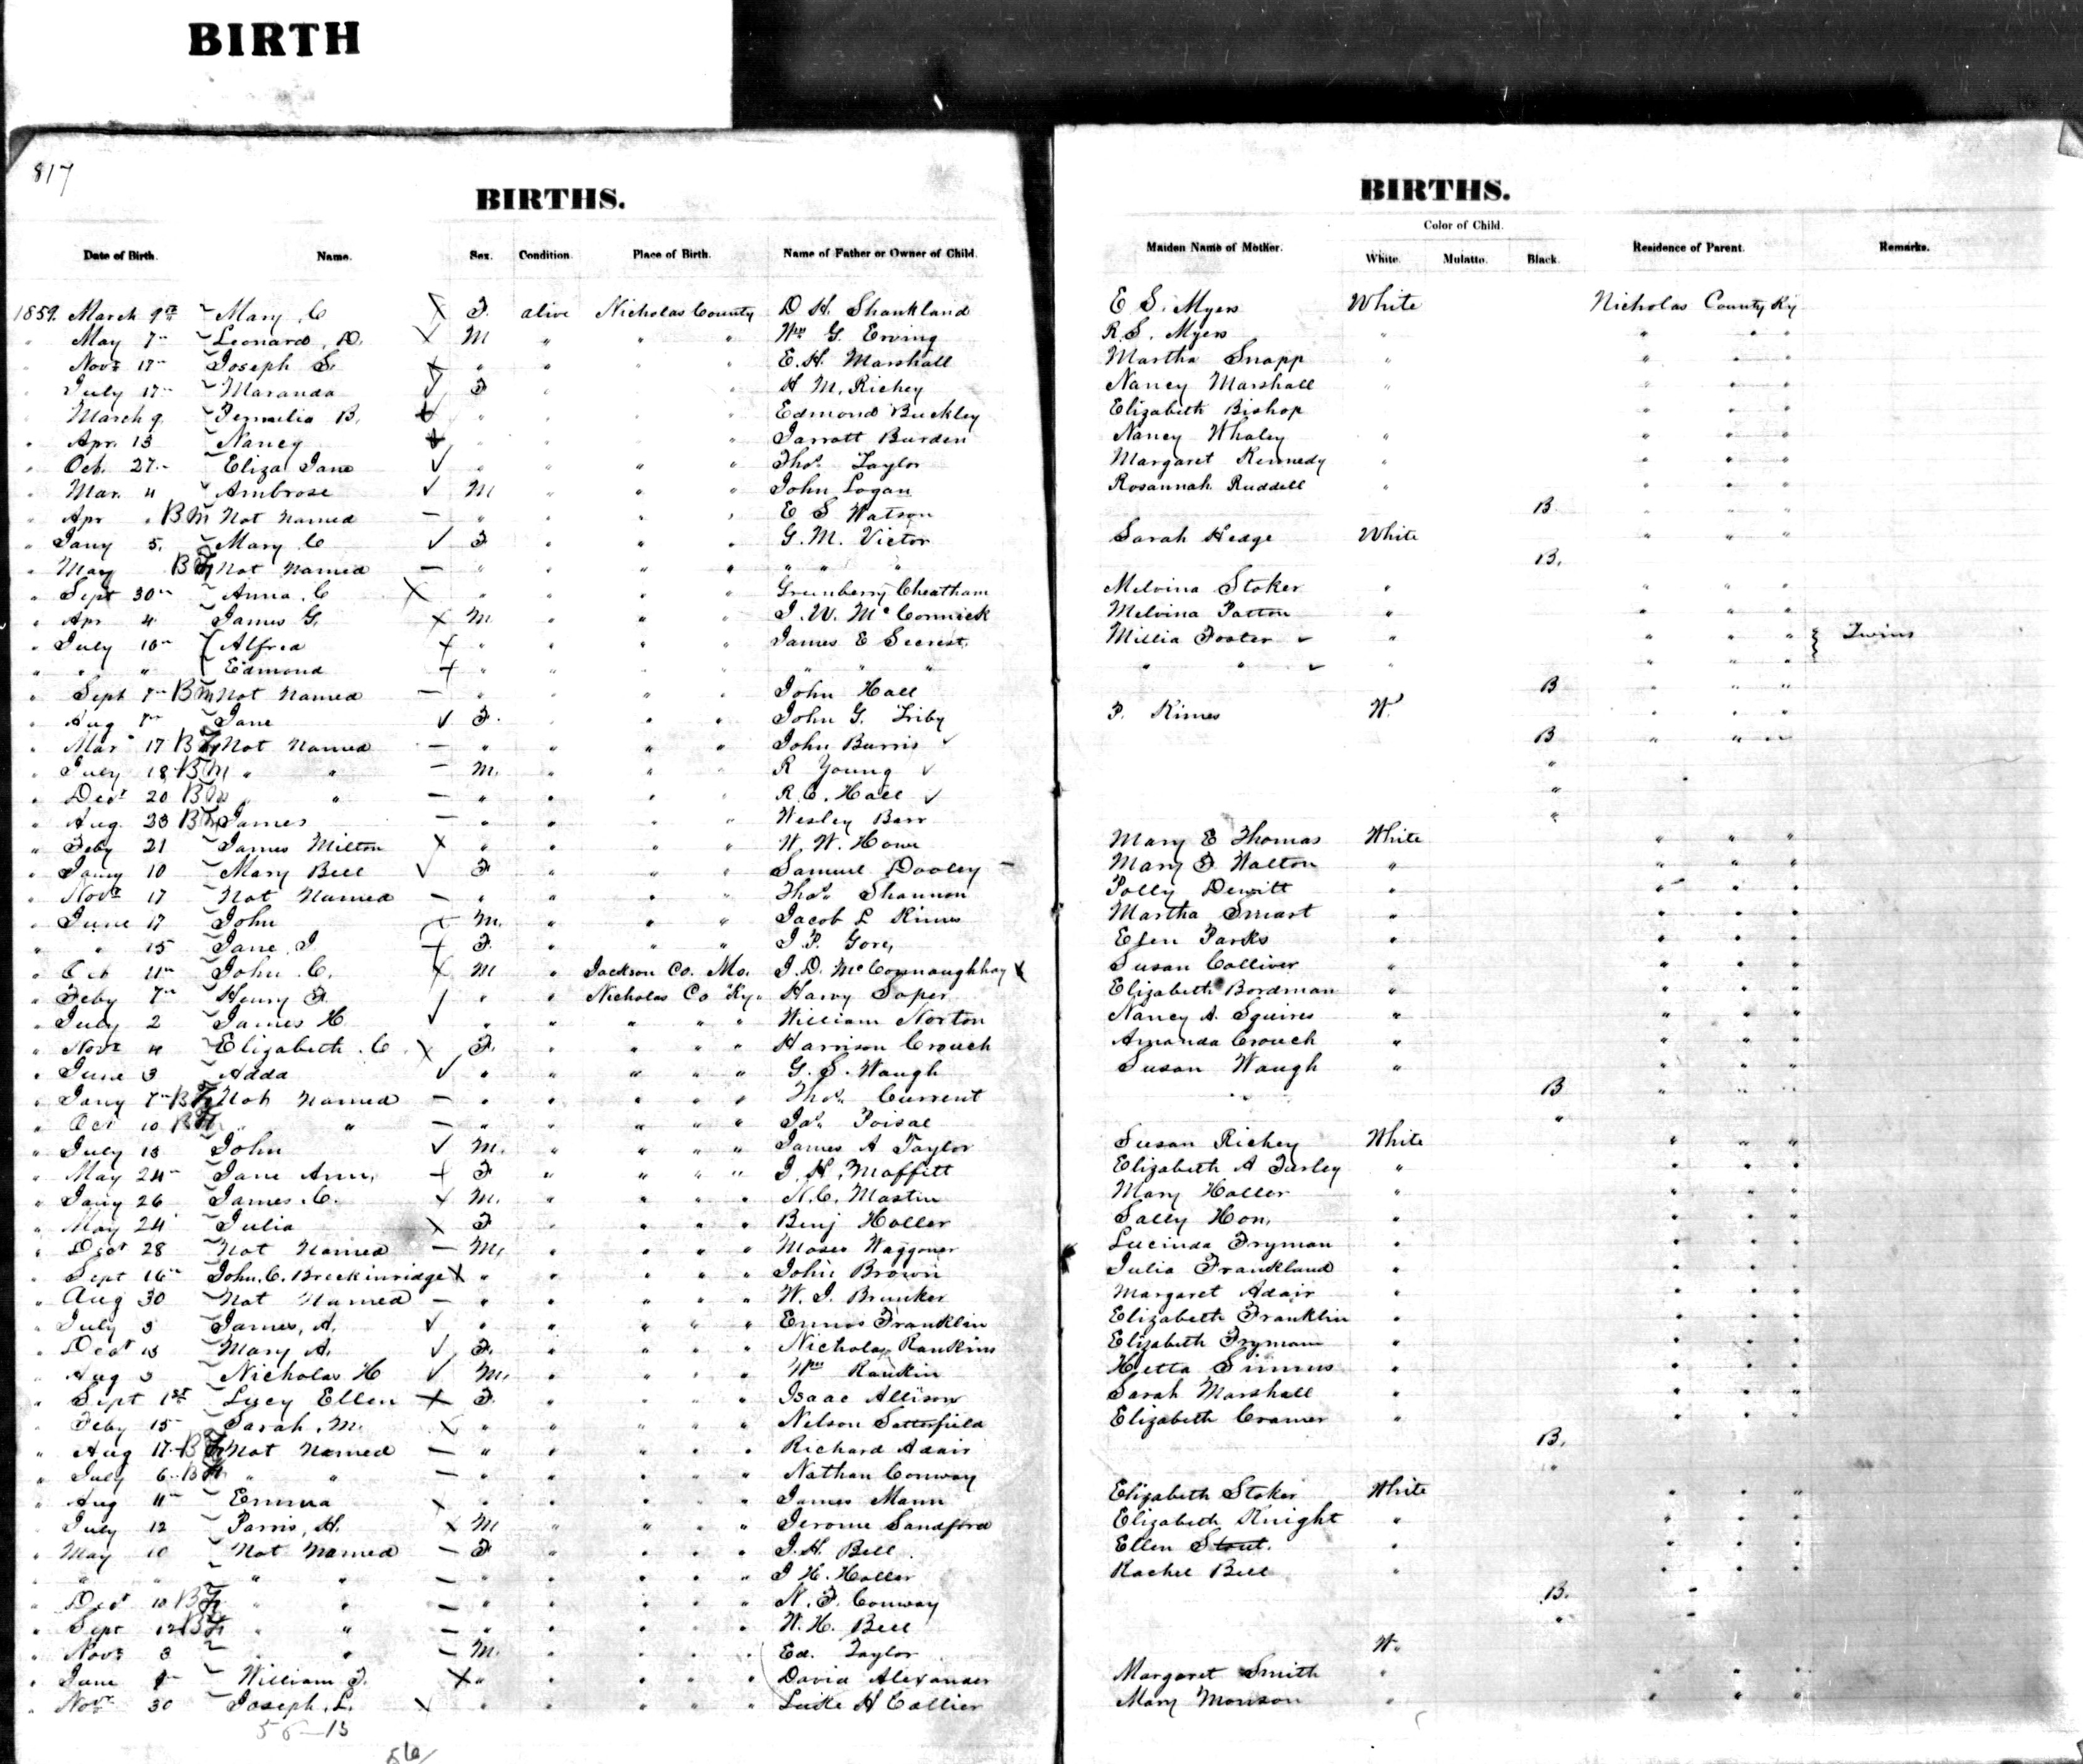 BIRTH
817
BIRTHS.
Date of Birth. Name. Sex. Condition. Place of Birth. Name of Father or Owner of Child.
1859. March 9th Mary C F. alive Nicholas County D. H. Shankland
" May 7th Leonard D. M " " " Wm G. Erving
" Novr 17th Joseph S. " " " " E. H. Marshall
" July 17th Maranda F " " " H M. Richey
" March 9 B. " " " " Edmond Buckley
" Apr. 13 Nancy " " " " Jarrott Burden
" Oct. 27th Eliza Jane " " " " Thos. Taylor
" Mar. 4 Ambrose M " " " John Logan
" Apr " B M Not Named — " " " " E S Watson
" Jany 5. Mary C F " " " G. M. Victor
" May B Not Named — " " " " " " "
" Sept 30th Anna. C " " " " Greenberry Cheatham
" Apr 4 James G. M " " " J. W. McCormick
" July 10th Alfred " " " " James E Secrest.
" " " Edmond " " " " " " "
" Sept 7th B M Not Named — " " " " John Hall
" Aug 7th Jane F. " " " John G. Triby
" Mar 17 B F Not Named — " " " " John Burris
" July 18 B M " " — M. " " " R Young
" Decr 20 B M " " — " " " " R. C. Hall
" Aug. 23 B M James — " " " " Wesley Barr
" Feby 21 James Milton " " " " W. W. Howe
" Jany 10 Mary Bell F " " " Samuel Dooley —
" Novr 17 Not Named — " " " " Thos. Shannon
" June 17 John M. " " " Jacob L Kimes
" " 15 Jane J F. " " " J. P. Gore,
" Oct 11th John. C. M " Jackson Co. Mo. J. D. McConnaughhay
" Feby 7th Henry F. " " Nicholas Co Ky. Harvy Soper
" July 2 James H " " " " " William Norton
" Novr 4 Elizabeth. C F. " " " " Harrison Crouch
" June 3 Adda " " " " " G. S. Waugh
" Jany 7th B F Not Named — " " " " " Thos. Current
" Oct 10 B F " " — " " " " " Jas. Foisal
" July 13 John M. " " " " James A Taylor
" May 24th Jane Ann, F " " " " J. H. Moffitt
" Jany 26 James. C. M. " " " " N. C. Mastin
" May 24 Julia F " " " " Benj Holler
" Decr 28 Not Named — M. " " " " Moses Waggoner
" Sept 16th John. C. Breckinridge " " " " " John Brown
" Aug 30 Not Named — " " " " " W. J. Brunker
" July 3 James, A. " " " " " Ennos Franklin
" Decr 13 Mary A. F. " " " " Nicholas Rankins
" Aug 3 Nicholas H M. " " " " Wm Rankin
" Sept 1st Lucy Ellen F. " " " " Isaac Allison
" Feby 15 Sarah. M. " " " " " Nelson Satterfield
" Aug 17 B F Not Named — " " " " " Richard Adair
" July 6 B F " " — " " " " " Nathan Conway
" Aug 11th Emma " " " " " James Mann
" July 12 Parris, H. M " " " " Jerome Sandford
" May 10 Not Named — F " " " " J. H. Bell.
" " " " " — " " " " " J H. Holler
" Decr 10 B F " " — " " " " " N. F. Conway
" Sept 12 B F " " — " " " " " W. H. Bell
" Novr 3 " " — M. " " " " Ed. Taylor
" June William F. " " " " " David Alexander
" Novr 30 Joseph. L. " " " " " Luke H Collier
56—13
56
BIRTHS.
Color of Child.
Maiden Name of Mother. White. Mulatto. Black. Residence of Parent. Remarks.
E S. Myers White Nicholas County Ky
R. S. Myers " " " "
Martha Snapp " " " "
Nancy Marshall " " " "
Elizabeth Bishop " " "
Nancy Whaley " " " "
Margaret Kennedy " " " "
Rosannah Ruddell " " " "
B. " " "
Sarah Hedge White " " "
B.
Melvina Stoker " " " "
Melvina Patton " " " "
Millia Foster " " " " Twins
" " " " " "
B " " "
P. Kimes W. " " "
B " " "
"
"
"
Mary E Thomas White " " "
Mary F. Walton " " " "
Polly Dewitt " " " "
Martha Smart " " " "
Elen Parks " " " "
Susan Colliver " " " "
Elizabeth Bordman " " " "
Nancy A. Squires " " " "
Amanda Crouch " " " "
Susan Waugh " " " "
B " " "
"
Susan Richey White " " "
Elizabeth A Turley " " " "
Mary Holler " " " "
Sally Hon, " " " "
Lucinda Fryman " " " "
Julia Frankland " " " "
Margaret Adair " " " "
Elizabeth Franklin " " " "
Elizabeth Fryman " " " "
Hetta Simms " " " "
Sarah Marshall " " " "
Elizabeth Cramer " " " "
B.
"
Elizabeth Stoker White " " "
Elizabeth Knight " " " "
Ellen Stout. " " " "
Rachel Bell " " " "
B. "
" "
W.
Margaret Smith " " " "
Mary Monson " " " "